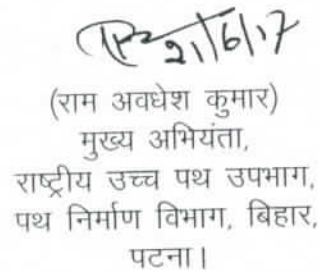 21/6/17
(राम अवधेश कुमार)
मुख्य अभियंता,
राष्ट्रीय उच्च पथ उपभाग,
पथ निर्माण विभाग, बिहार,
पटना।